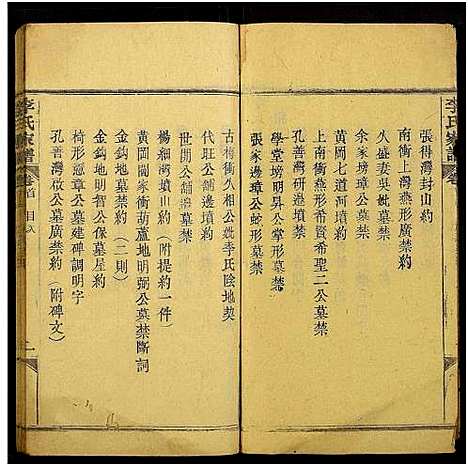 李氏家譜
張得灣封山約
南衝上灣燕形廣禁約
久盛妻吳妣墓禁
余家塝璋公墓禁約
黄岡七道河墳約
月形上灣貴賢希聖二公墓禁
學堂塝明昇公掌形墓禁
孔善灣研邊墳禁
張家邊璋公蛇形墓禁
古樗衝久相公妣李氏陰地契
代旺公舖邊墳禁約
世開公舖邊墓禁
楊細灣墳山約（附提約一件）
黄岡閻家衝葫蘆地明弼公墓禁斷詞
金鈎地墓禁約（二則）
金鈎地明智公保墓屋約
椅形憲章公墓建碑調明字
孔善灣啟公墓廣禁約（附碑文）
李氏家譜
卷首
目次